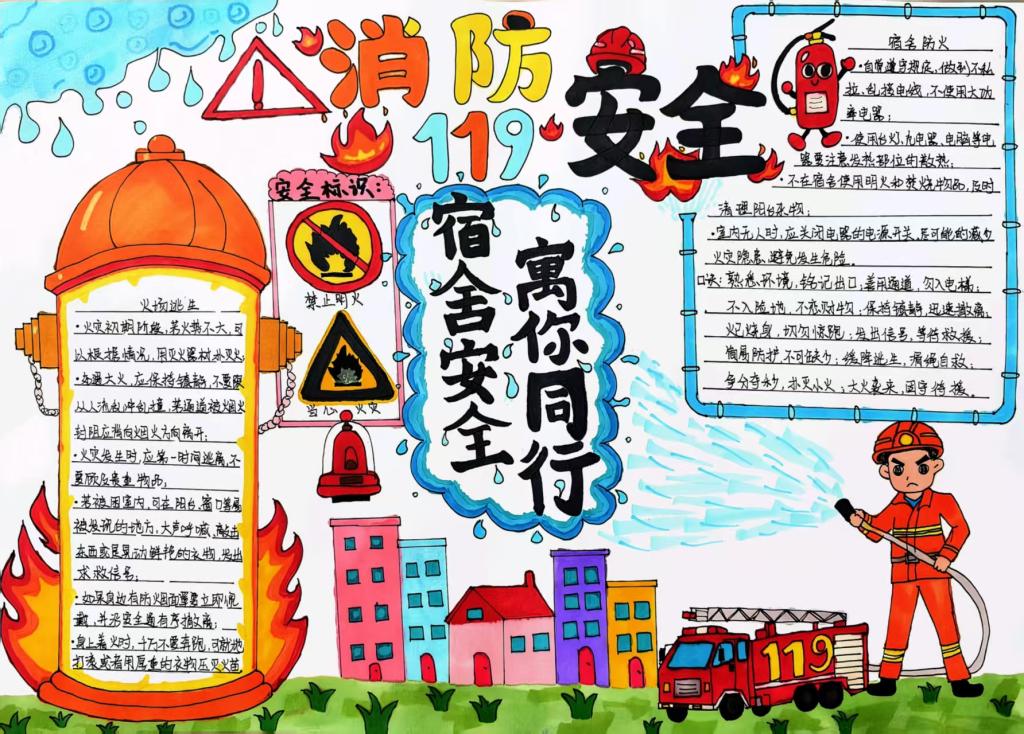 消防
119
安全
安全标识:
禁止明火
宿舍安全
寓你同行
火场逃生
·火灾初期阶段,若火势不大,可
以根据情况,用灭火器材扑灭火;
·如遇大火,应保持镇静,不要跟
从人流乱冲乱撞,某通道被烟火
封阻应背向烟火方向离开;
·火灾发生时,应第一时间逃离,不
要顾及贵重物品;
·若被困室内,可在阳台、窗口等易
被发现的地方,大声呼喊,敲击
东西或是晃动鲜艳的衣物,发出
求救信号;
·如果身边有防烟面罩要立即佩
戴,并沿安全通道有序撤离;
·身上着火时,千万不要奔跑,可就地
打滚或者用厚重的衣物压灭火苗
宿舍防火
·自觉遵守规定,做到不私
拉、乱接电线,不使用大功
率电器;
·使用台灯、充电器、电脑等电
器要注意发热部位的散热;
·不在宿舍使用明火和焚烧物品,及时
清理阳台杂物;
·室内无人时,应关闭电器的电源开关,尽可能的减少
火灾隐患,避免发生危险。
口诀:熟悉环境,铭记出口,盖司通道,勿入电梯;
不入险地,不恋财物,保持镇静,迅速撤离;
火已烧身,切勿惊跑;发出信号,等待救援;
简易防护,不可缺少;缓降逃生,滑绳自救;
争分夺秒,扑灭小火;大火袭来,固守待援。
119